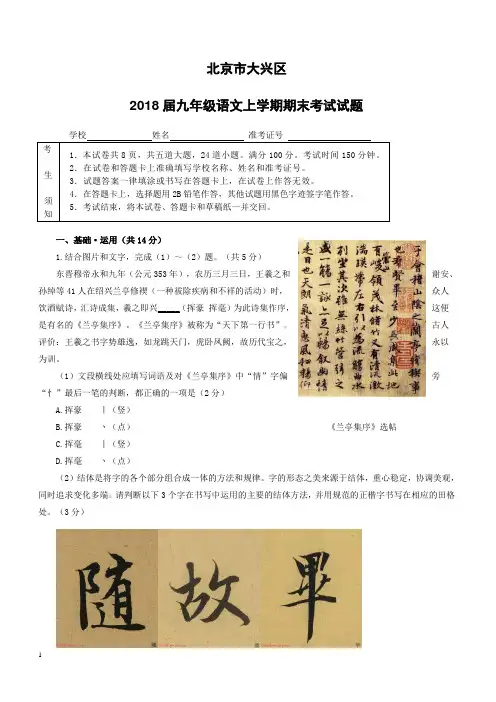 北京市大兴区
2018届九年级语文上学期期末考试试题
学校 姓名 准考证号
考生须知
1．本试卷共8页，共五道大题，24道小题。满分100分。考试时间150分钟。
2．在试卷和答题卡上准确填写学校名称、姓名和准考证号。
3．试题答案一律填涂或书写在答题卡上，在试卷上作答无效。
4．在答题卡上，选择题用2B铅笔作答，其他试题用黑色字迹签字笔作答。
5．考试结束，将本试卷、答题卡和草稿纸一并交回。
一、基础·运用（共14分）
1.结合图片和文字，完成（1）～（2）题。（共5分）
东晋穆帝永和九年（公元353年），农历三月三日，王羲之和谢安、
孙绰等41人在绍兴兰亭修禊（一种祓除疾病和不祥的活动）时，众人
饮酒赋诗，汇诗成集，羲之即兴_____（挥豪 挥毫）为此诗集作序，这便
是有名的《兰亭集序》。《兰亭集序》被称为“天下第一行书”。古人
评价：王羲之书字势雄逸，如龙跳天门，虎卧凤阙，故历代宝之，永以
为训。
（1）文段横线处应填写词语及对《兰亭集序》中“情”字偏旁
“忄”最后一笔的判断，都正确的一项是(2分)
A.挥豪 丨(竖)
B.挥豪 丶(点)
《兰亭集序》选帖
C.挥毫 丨(竖)
D.挥毫 丶(点)
（2）结体是将字的各个部分组合成一体的方法和规律。字的形态之美来源于结体，重心稳定，协调美观，
同时追求变化多端。请判断以下3个字在书写中运用的主要的结体方法，并用规范的正楷字书写在相应的田格
处。（3分）
随 故 畢
1